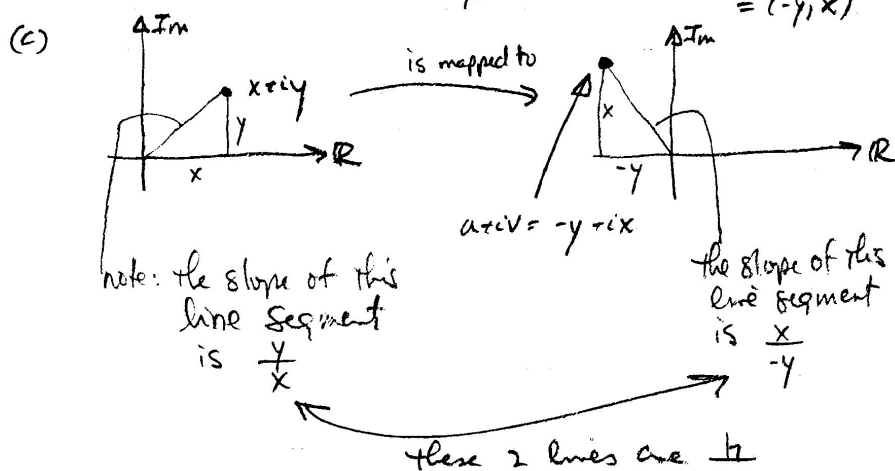 = (-y, x)
(c)
Im
is mapped to
Im
x+iy
y
x
R
x
-y
R
u+iv = -y+ix
note: the slope of this
line segment
is y/x
the slope of this
line segment
is x/-y
these 2 lines are